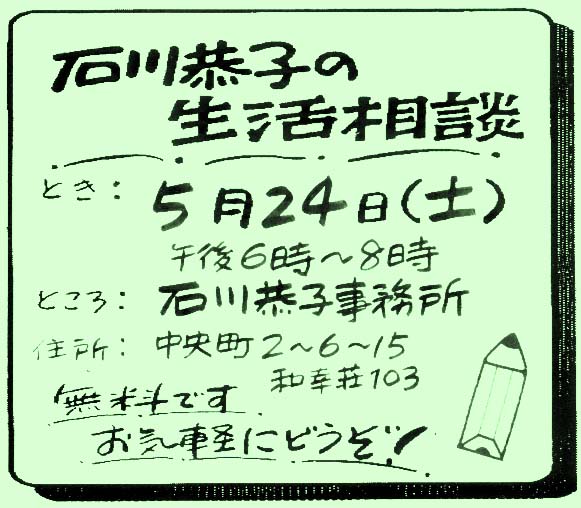 石川恭子の
生活相談
とき: 5月24日(土)
午後6時〜8時
ところ: 石川恭子事務所
住所: 中央町2〜6〜15
和幸荘103
無料です
お気軽にどうぞ!